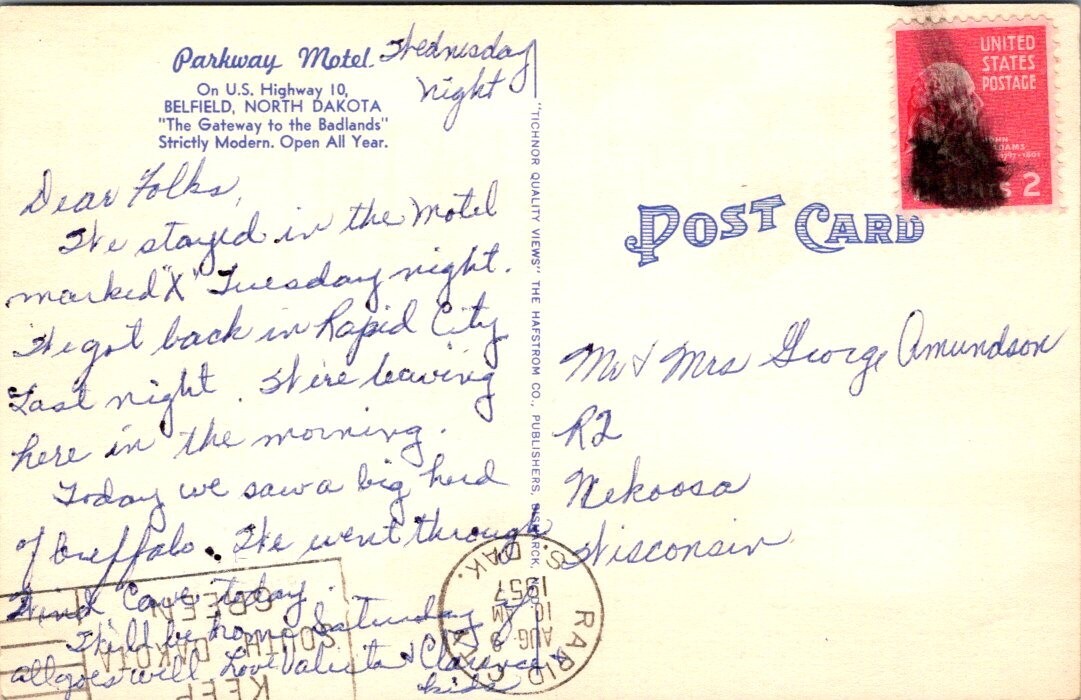 Parkway Motel
On U.S. Highway 10,
BELFIELD, NORTH DAKOTA
"The Gateway to the Badlands"
Strictly Modern. Open All Year.
Wednesday
night
Dear Folks,
We stayed in the Motel
marked "X" Tuesday night.
We got back in Rapid City
Last night. We're leaving
here in the morning.
Today we saw a big herd
of buffalo. We went through
Wind Cave today.
We'll be home Saturday if
all goes well. Love & Clarence
"TICHNOR QUALITY VIEWS" THE HAFSTROM CO., PUBLISHERS, BISMARCK, N.
UNITED
STATES
POSTAGE
JOHN
ADAMS
1797-1801
CENTS 2
POST CARD
Mr & Mrs George Amundson
R2
Nekoosa
Wisconsin
RAPID CITY
S. DAK.
AUG 8
10 AM
1957
KEEP
SOUTH DAKOTA
GREEN